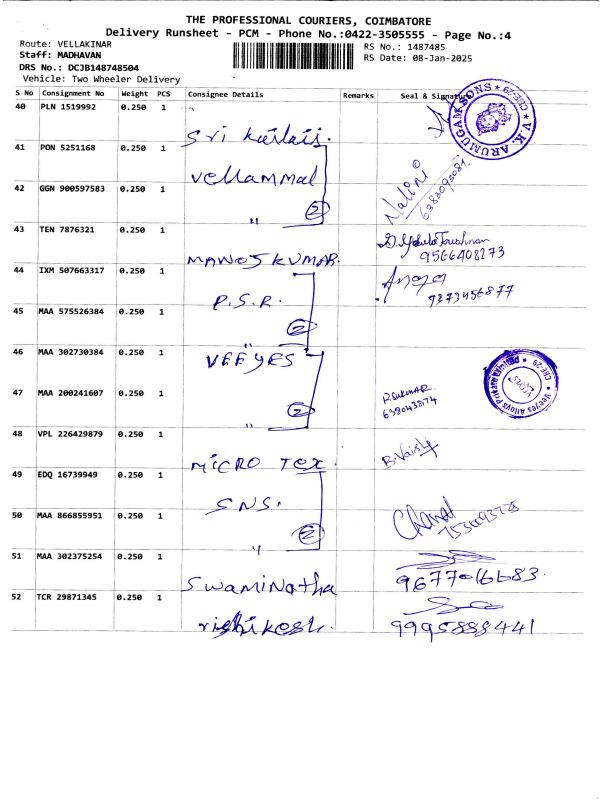 THE PROFESSIONAL COURIERS, COIMBATORE
Delivery Runsheet - PCM - Phone No.:0422-3505555 - Page No.:4
Route: VELLAKINAR
RS No.: 1487485
Staff: MADHAVAN
RS Date: 08-Jan-2025
DRS No.: DCJB148748504
Vehicle: Two Wheeler Delivery
S No Consignment No Weight PCS Consignee Details Remarks Seal & Signature
40 PLN 1519992 0.250 1
Sri Kailais.
V.K. ARUMUGAM SONS * CBE-29 *
41 PON 5251168 0.250 1
Vellammal
Nalini
6383095081
42 GGN 900597583 0.250 1
" (2)
43 TEN 7876321 0.250 1
MANOJ KUMAR.
9566408273
44 IXM 507663317 0.250 1
P.S.R.
9373456877
45 MAA 575526384 0.250 1
" (2)
46 MAA 302730384 0.250 1
VEEYES
Veeyes Alloys Private Limited * CBE-29 *
47 MAA 200241607 0.250 1
" (2)
P. Sukumar
638043874
48 VPL 226429879 0.250 1
MICRO TEX.
B. Vaish
49 EDQ 16739949 0.250 1
SNS.
50 MAA 866855951 0.250 1
" (2)
51 MAA 302375254 0.250 1
Swaminatha
9677016683.
52 TCR 29871345 0.250 1
rishikesh.
9995888441